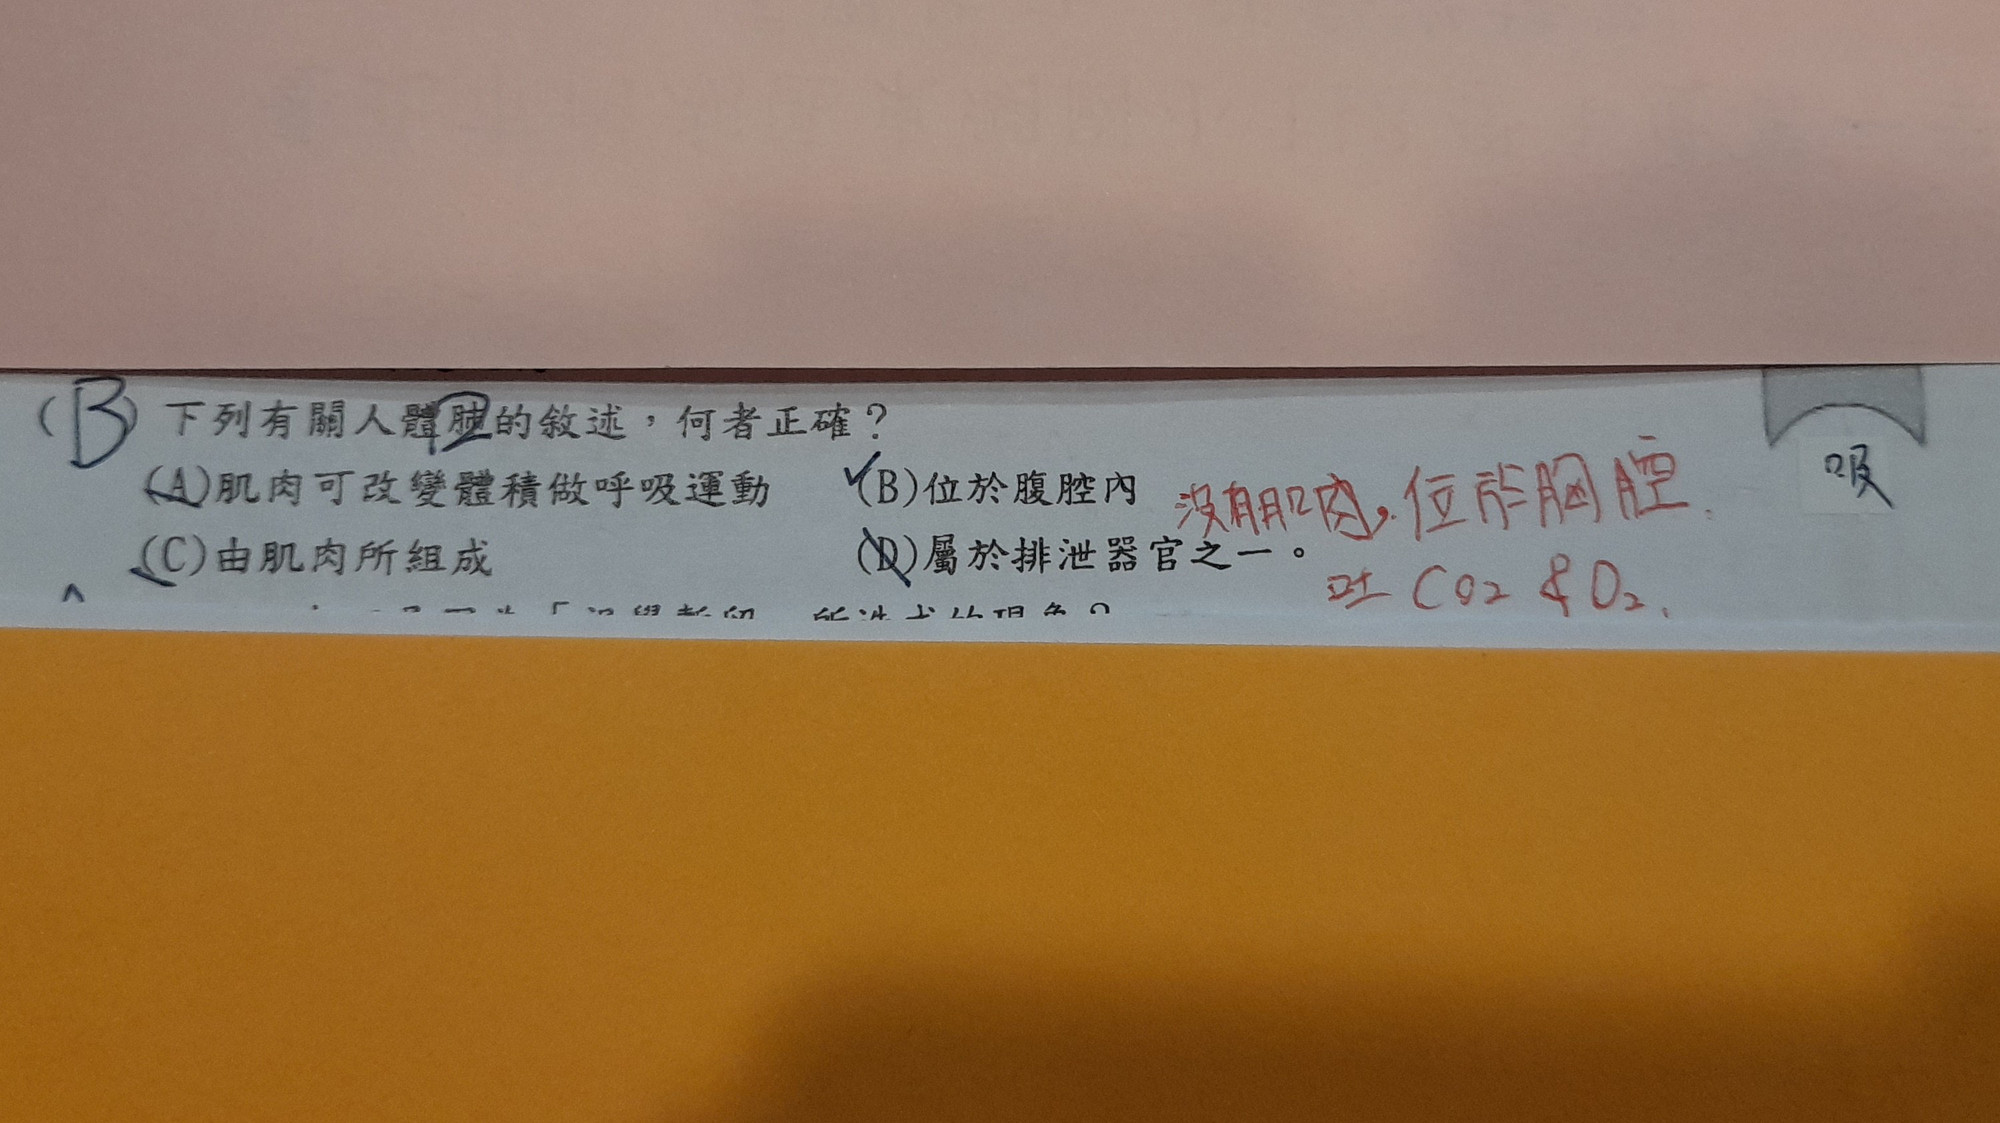 (B) 下列有關人體肺的敘述，何者正確？
(A)肌肉可改變體積做呼吸運動 (B)位於腹腔內
沒有肌肉，位於胸腔.
(C)由肌肉所組成 (D)屬於排泄器官之一。
吐 CO2 & O2.
吸